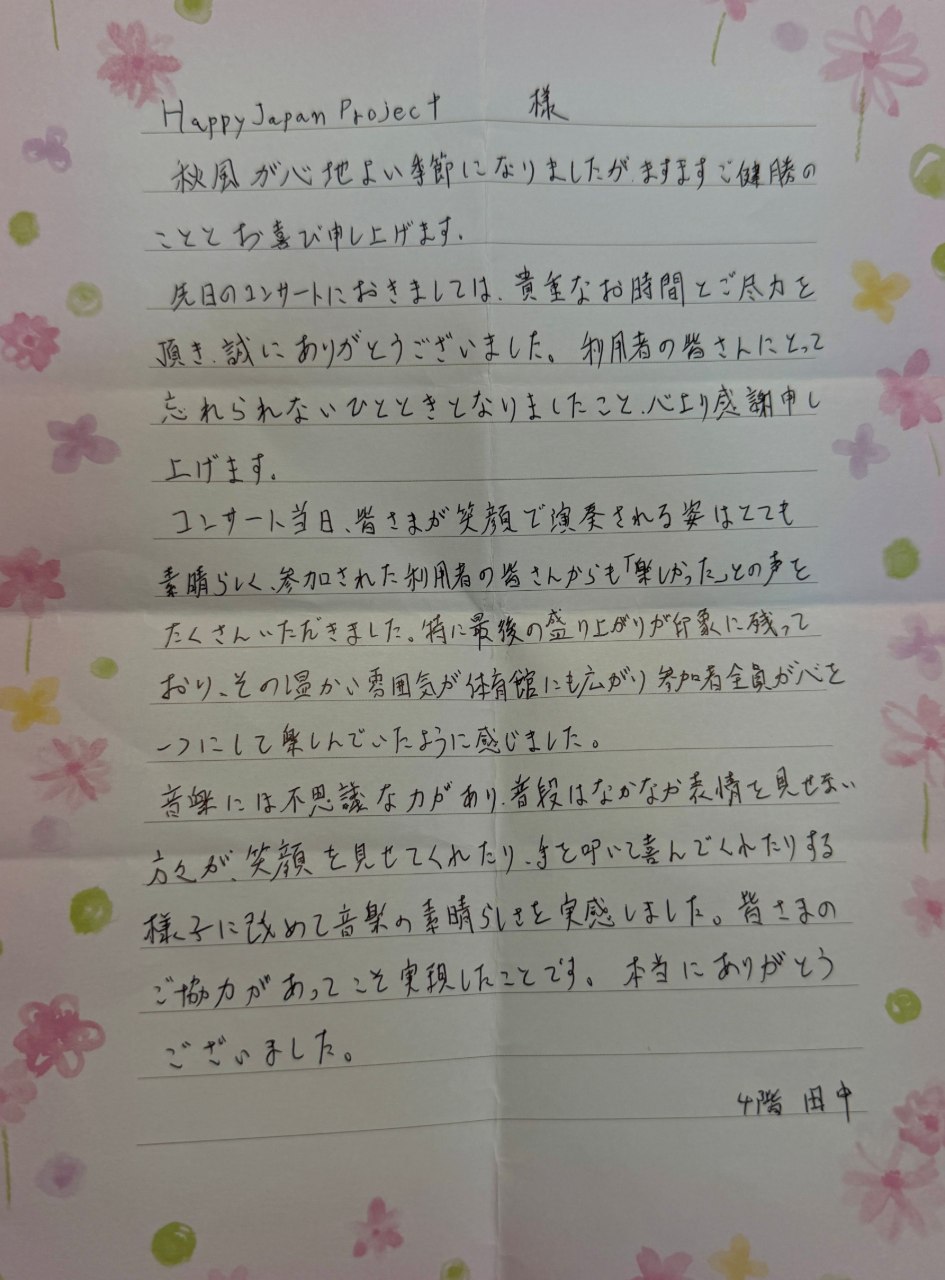 Happy Japan Project 様
秋風が心地よい季節になりましたが、ますますご健勝の
こととお喜び申し上げます。
先日のコンサートにおきましては、貴重なお時間とご尽力を
頂き、誠にありがとうございました。利用者の皆さんにとって
忘れられないひとときとなりましたこと、心より感謝申し
上げます。
コンサート当日、皆さまが笑顔で演奏される姿はとても
素晴らしく、参加された利用者の皆さんからも「楽しかった」との声を
たくさんいただきました。特に最後の盛り上がりが印象に残って
おり、その温かい雰囲気が体育館にも広がり参加者全員が心を
一つにして楽しんでいたように感じました。
音楽には不思議な力があり、普段はなかなか表情を見せない
方々が、笑顔を見せてくれたり、手を叩いて喜んでくれたりする
様子に改めて音楽の素晴らしさを実感しました。皆さまの
ご協力があってこそ実現したことです。本当にありがとう
ございました。
4階 田中